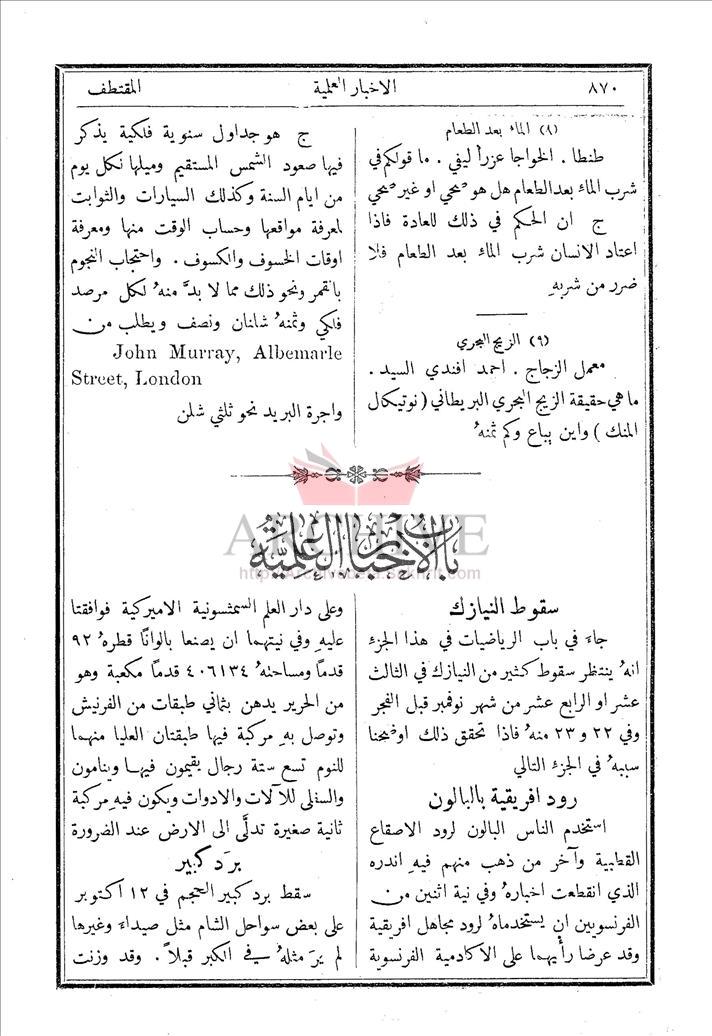 ٨٧٠
الاخبار العلمية
المقتطف
(٨) الماء بعد الطعام
طنطا . الخواجا عزرا ليفي . ما قولكم في
شرب الماء بعد الطعام هل هو صحي او غير صحي
ج ان الحكم في ذلك للعادة فاذا
اعتاد الانسان شرب الماء بعد الطعام فلا
ضرر من شربهِ
(٩) الزيج البحري
معمل الزجاج . احمد افندي السيد .
ما هي حقيقة الزيج البحري البريطاني (نوتيكال
المنك) واين يباع وكم ثمنهُ
ج هو جداول سنوية فلكية يذكر
فيها صعود الشمس المستقيم وميلها لكل يوم
من ايام السنة وكذلك السيارات والثوابت
لمعرفة مواقعها وحساب الوقت منها ومعرفة
اوقات الخسوف والكسوف . واحتجاب النجوم
بالقمر ونحو ذلك مما لا بدَّ منهُ لكل مرصد
فلكي وثمنهُ شلنان ونصف ويطلب من
John Murray, Albemarle
Street, London
واجرة البريد نحو ثلثي شلن
باب الاخبار العلمية
ARCHIVE
سقوط النيازك
جاء في باب الرياضيات في هذا الجزء
انهُ ينتظر سقوط كثير من النيازك في الثالث
عشر او الرابع عشر من شهر نوفمبر قبل الفجر
وفي ٢٢ و ٢٣ منهُ فاذا تحقق ذلك اوضحنا
سببهُ في الجزء التالي
رود افريقية بالبالون
استخدم الناس البالون لرود الاصقاع
القطبية وآخر من ذهب منهم فيهِ اندره
الذي انقطعت اخبارهُ وفي نية اثنين من
الفرنسويين ان يستخدماهُ لرود مجاهل افريقية
وقد عرضا رأيهما على الاكادمية الفرنسوية
وعلى دار العلم السمثسونية الاميركية فوافقتا
عليهِ وفي نيتهما ان يصنعا بالونًا قطرهُ ٩٢
قدمًا ومساحتهُ ٤٠٦١٣٤ قدمًا مكعبة وهو
من الحرير يدهن بثماني طبقات من الفرنيش
وتوصل بهِ مركبة فيها طبقتان العليا منهما
للنوم تسع ستة رجال يقيمون فيها وينامون
والسفلى للآلات والادوات ويكون فيهِ مركبة
ثانية صغيرة تدلَّى الى الارض عند الضرورة
برَد كبير
سقط برد كبير الحجم في ١٢ اكتوبر
على بعض سواحل الشام مثل صيداء وغيرها
لم يرَ مثلهُ في الكبر قبلاً . وقد وزنت